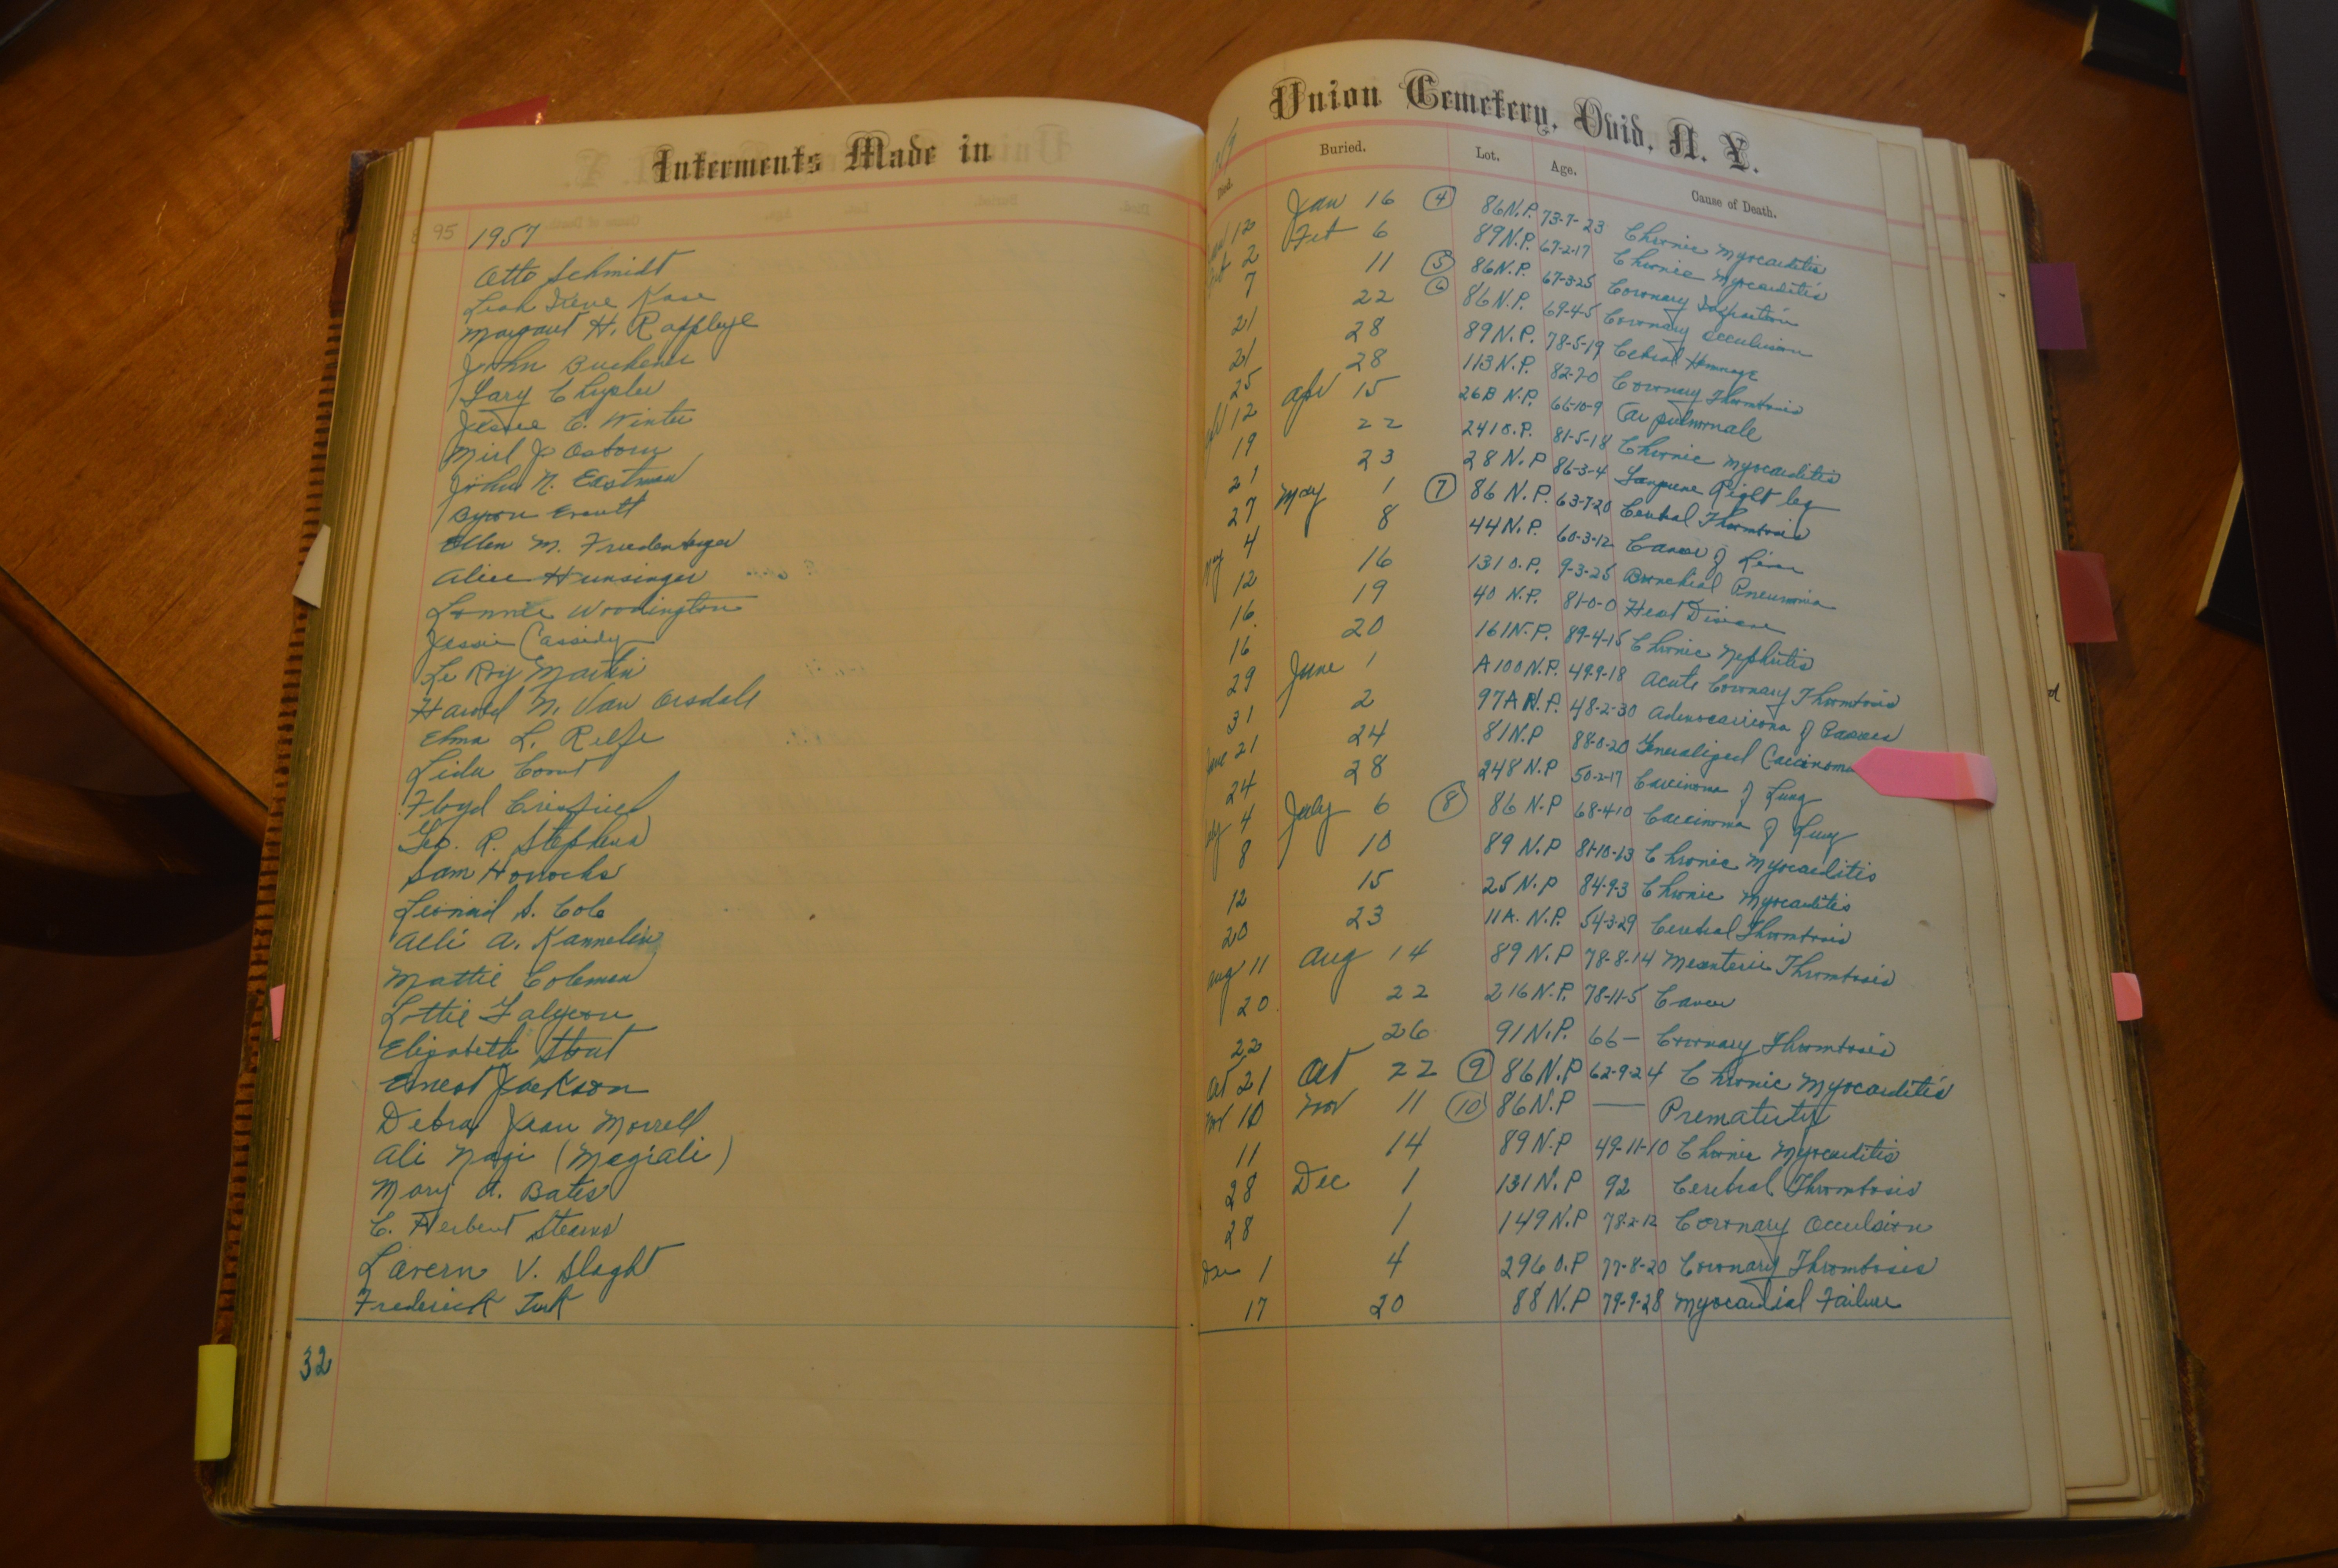 Interments Made in
95 1957
Otto Schmidt
Leah Irene Kase
Margaret H. Rappleye
John Buckner
Gary Chrysler
Jessie C. Winter
Mirl J. Osborn
John N. Eastman
Byron Everitt
Ellen M. Freudenberger
Alice Hunsinger
Lonnie Woodington
Jessie Cassidy
Le Roy Martin
Harold N. Van Orsdall
Elma L. Relfe
Lida Comt
Floyd Crisfield
Geo. R. Stephens
Sam Horrocks
Leonard S. Cole
Alli A. Kannelin
Mattie Coleman
Lottie Falyeon
Elizabeth Stout
Ernest Jackson
Debra Jean Morrell
Ali Nagi (Magiali)
Mary A. Bates
C. Herbert Stearns
Lavern V. Slaght
Frederick Turk
32
Union Cemetery, Ovid, N. Y.
Died. Buried. Lot. Age. Cause of Death.
12 Jan 16 (4) 86 N.P. 73-7-23 Chronic Myocarditis
2 Feb 6 89 N.P. 67-2-17 Chronic Myocarditis
7 11 (5) 86 N.P. 67-3-25 Coronary Infarction
21 22 (6) 86 N.P. 69-4-5 Coronary Occulusion
21 28 89 N.P. 78-5-19 Cebral Hemmage
25 28 113 N.P. 82-7-0 Coronary Thrombosis
12 Apr 15 26B N.P. 66-10-9 Cor pulmonale
19 22 241 O.P. 81-5-18 Chronic Myocarditis
21 23 28 N.P 86-3-4 Gangrene Right leg
27 May 1 (7) 86 N.P. 63-7-20 Cerebral Thrombosis
May 4 8 44 N.P. 60-3-12 Cancer of Liver
12 16 131 O.P. 9-3-25 Bronchial Pneumonia
16 19 40 N.P. 81-0-0 Heart Disease
16 20 161 N.P. 89-4-15 Chronic Nephritis
29 June 1 A100 N.P. 49-9-18 Acute Coronary Thrombosis
31 2 97A N.P. 48-2-30 Adenocarcinoma of
June 21 24 81 N.P 88-0-20 Generalized Carcinoma
24 28 248 N.P 50-2-17 Carcinoma of Lung
July 4 July 6 (8) 86 N.P 68-4-10 Carcinoma of Lung
8 10 89 N.P 81-10-13 Chronic Myocarditis
12 15 25 N.P 84-9-3 Chronic Myocarditis
20 23 11A. N.P. 54-3-29 Cerebral Thrombosis
Aug 11 Aug 14 89 N.P 78-8-14 Mesenteric Thrombosis
20 22 216 N.P. 78-11-5 Cancer
22 26 91 N.P. 66 — Coronary Thrombosis
Oct 21 Oct 22 (9) 86 N.P 62-9-24 Chronic Myocarditis
Nov 10 Nov 11 (10) 86 N.P — Prematurity
11 14 89 N.P 49-11-10 Chronic Myocarditis
28 Dec 1 131 N.P 92 Cerebral Thrombosis
28 1 149 N.P 78-2-12 Coronary Occulsion
Dec 1 4 296 O.P 77-8-20 Coronary Thrombosis
17 20 88 N.P 79-9-28 Myocardial Failure